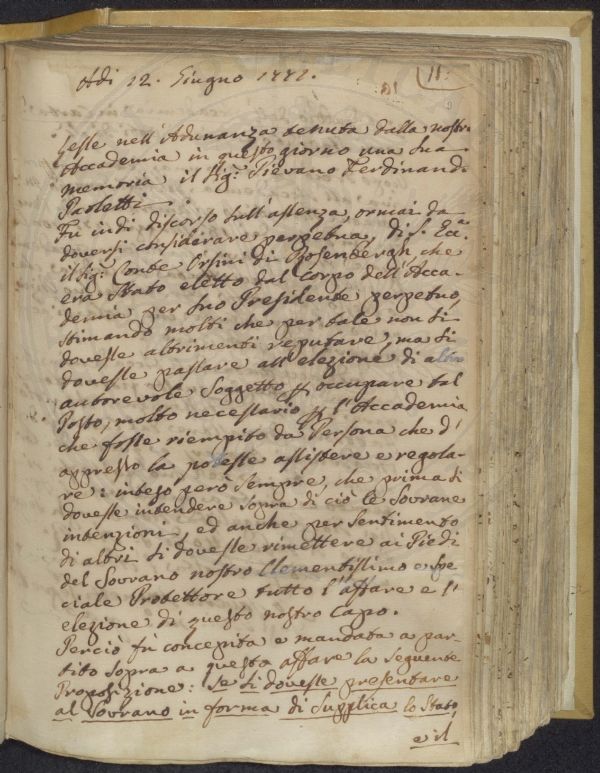 Adi 12. Giugno 1771.
11.
Lesse nell'Adunanza tenuta dalla nostra
Accademia in questo giorno una sua
memoria il Sig.r Pievano Ferdinando
Paoletti.
Fu indi discorso sull'assenza, ormai da
doversi considerare perpetua, di S. Ecc.a
il Sig.r Conte Orsini di Rosenbergh, che
era stato eletto dal Corpo dell'Acca-
demia per suo Presidente perpetuo,
stimando molti che per tale non si
dovesse altrimenti reputare, ma si
dovesse passare all'elezione di altro
autorevole Soggetto p occupare tal
Posto, molto necessario p l'Accademia
che fosse riempito da Persona che d'
appresso la potesse assistere e regola-
re: inteso però sempre, che prima si
dovesse intendere sopra di ciò le Sovrane
intenzioni, ed anche per sentimento
di altri si dovesse rimettere ai Piedi
del Sovrano nostro Clementissimo e spe-
ciale Protettore tutto l'affare e l'
elezione di questo nostro Capo.
Perciò fù concepita e mandata a par-
tito sopra a questo affare la seguente
Proposizione: Se si dovesse presentare
al Sovrano in forma di Supplica lo Stato,
e il